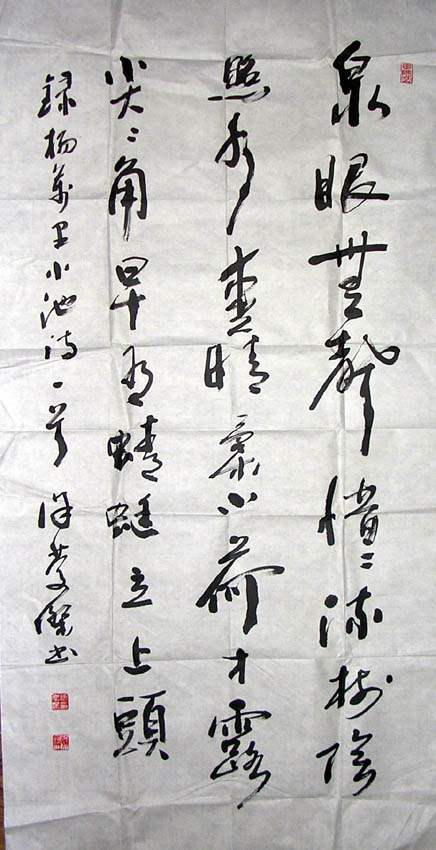 泉眼無聲惜〻流樹陰
照水愛晴柔小荷才露
尖〻角早有蜻蜓立上頭
録杨萬里小池诗一首 書